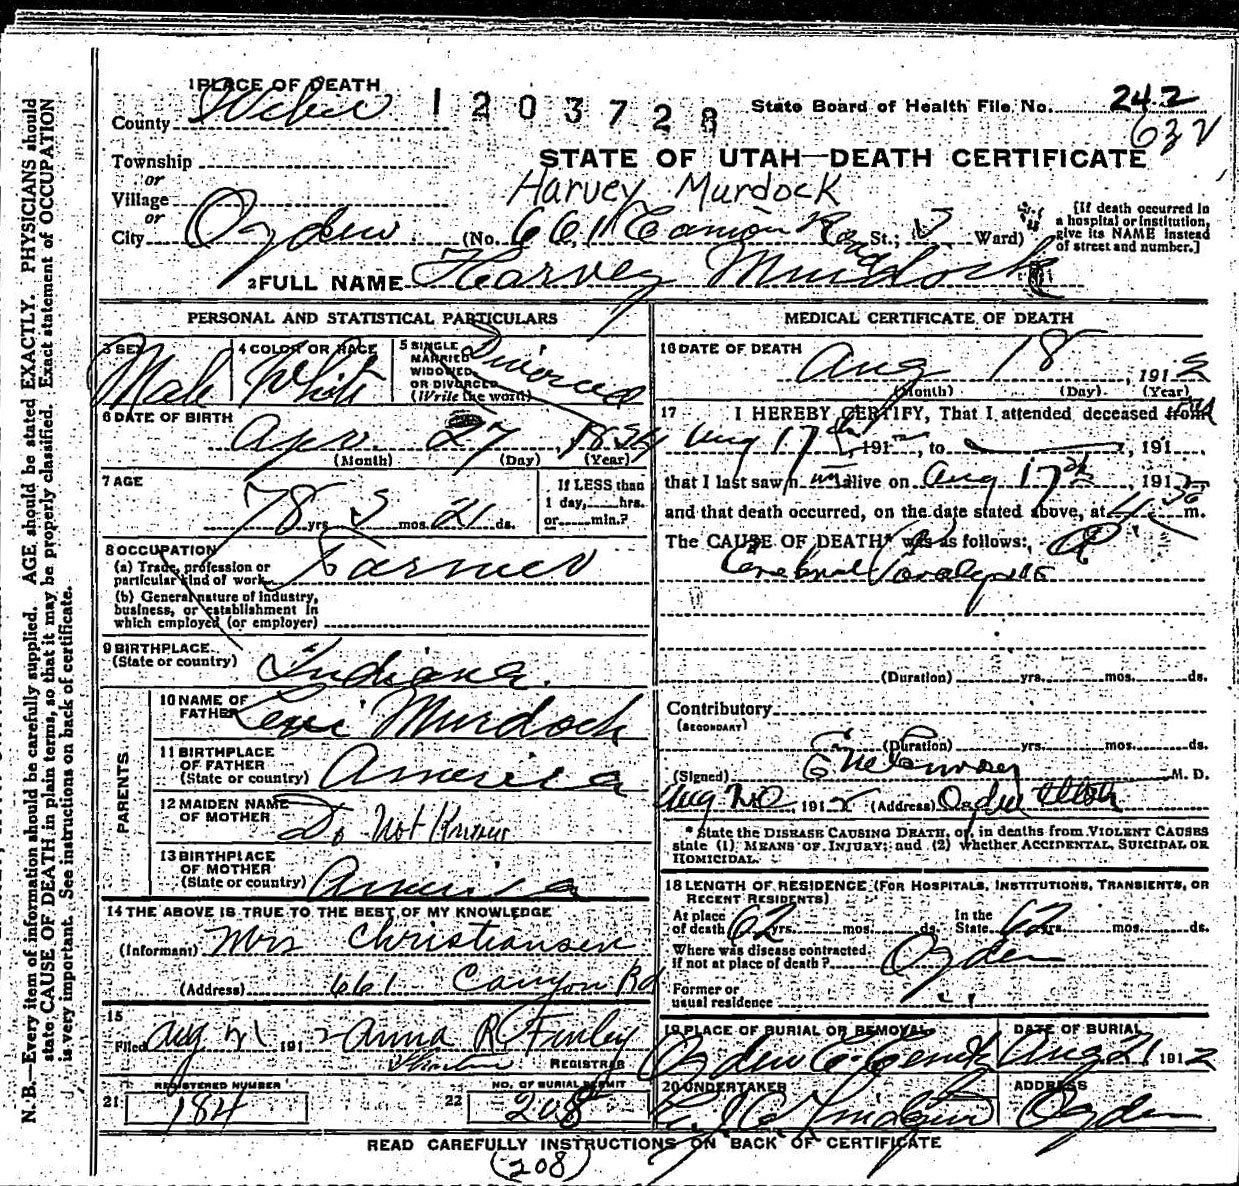 1 PLACE OF DEATH
County Weber
1203728
State Board of Health File No. 242
632
Township
or
Village
or
City Ogden
STATE OF UTAH—DEATH CERTIFICATE
Harvey Murdock
(No. 661 Canyon Road St.; Ward)
[If death occurred in a hospital or institution, give its NAME instead of street and number.]
2 FULL NAME Harvey Murdock
PERSONAL AND STATISTICAL PARTICULARS
3 SEX Male
4 COLOR OR RACE White
5 SINGLE MARRIED WIDOWED OR DIVORCED (Write the word) Divorced
6 DATE OF BIRTH Apr 27
(Month) (Day) (Year)
7 AGE 78 yrs. 3 mos. 21 ds.
If LESS than 1 day, hrs. or min.?
8 OCCUPATION
(a) Trade, profession or particular kind of work Farmer
(b) General nature of industry, business, or establishment in which employed (or employer)
9 BIRTHPLACE (State or country) Indiana.
PARENTS
10 NAME OF FATHER Levi Murdock
11 BIRTHPLACE OF FATHER (State or country) America
12 MAIDEN NAME OF MOTHER Do Not Know
13 BIRTHPLACE OF MOTHER (State or country) America
14 THE ABOVE IS TRUE TO THE BEST OF MY KNOWLEDGE
(Informant) Mrs Christiansen
(Address) 661 Canyon Rd
15
Filed Aug 21 1912 Anna R Finley
REGISTRAR
REGISTERED NUMBER
21 184
NO. OF BURIAL PERMIT
22 208
MEDICAL CERTIFICATE OF DEATH
16 DATE OF DEATH Aug 18, 1912
(Month) (Day) (Year)
17 I HEREBY CERTIFY, That I attended deceased from
Aug 17th, 191, to , 191
that I last saw him alive on Aug 17th, 1912
and that death occurred, on the date stated above, at m.
The CAUSE OF DEATH* was as follows:
Cerebral Paralysis
(Duration) yrs. mos. ds.
Contributory
(SECONDARY)
(Duration) yrs. mos. ds.
(Signed) M. D.
Aug 20 1912 (Address) Ogden Utah
* State the DISEASE CAUSING DEATH, or, in deaths from VIOLENT CAUSES state (1) MEANS OF INJURY; and (2) whether ACCIDENTAL, SUICIDAL OR HOMICIDAL.
18 LENGTH OF RESIDENCE (FOR HOSPITALS, INSTITUTIONS, TRANSIENTS, OR RECENT RESIDENTS)
At place of death 62 yrs. mos. ds. In the State 62 yrs. mos. ds.
Where was disease contracted, if not at place of death? Ogden
Former or usual residence
19 PLACE OF BURIAL OR REMOVAL DATE OF BURIAL
Ogden C. Aug 21 1912
20 UNDERTAKER ADDRESS
Ogden
READ CAREFULLY INSTRUCTIONS ON BACK OF CERTIFICATE
(208)
N. B.—Every item of information should be carefully supplied. AGE should be stated EXACTLY. PHYSICIANS should
state CAUSE OF DEATH in plain terms, so that it may be properly classified. Exact statement of OCCUPATION
is very important. See instructions on back of certificate.